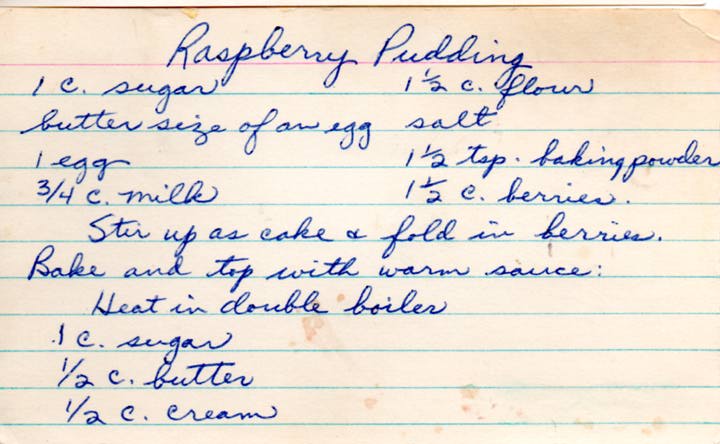 Raspberry Pudding
1 c. sugar 1 1/2 c. flour
butter size of an egg salt
1 egg 1 1/2 tsp. baking powder
3/4 c. milk 1 1/2 c. berries.
Stir up as cake & fold in berries.
Bake and top with warm sauce:
Heat in double boiler
1 c. sugar
1/2 c. butter
1/2 c. cream